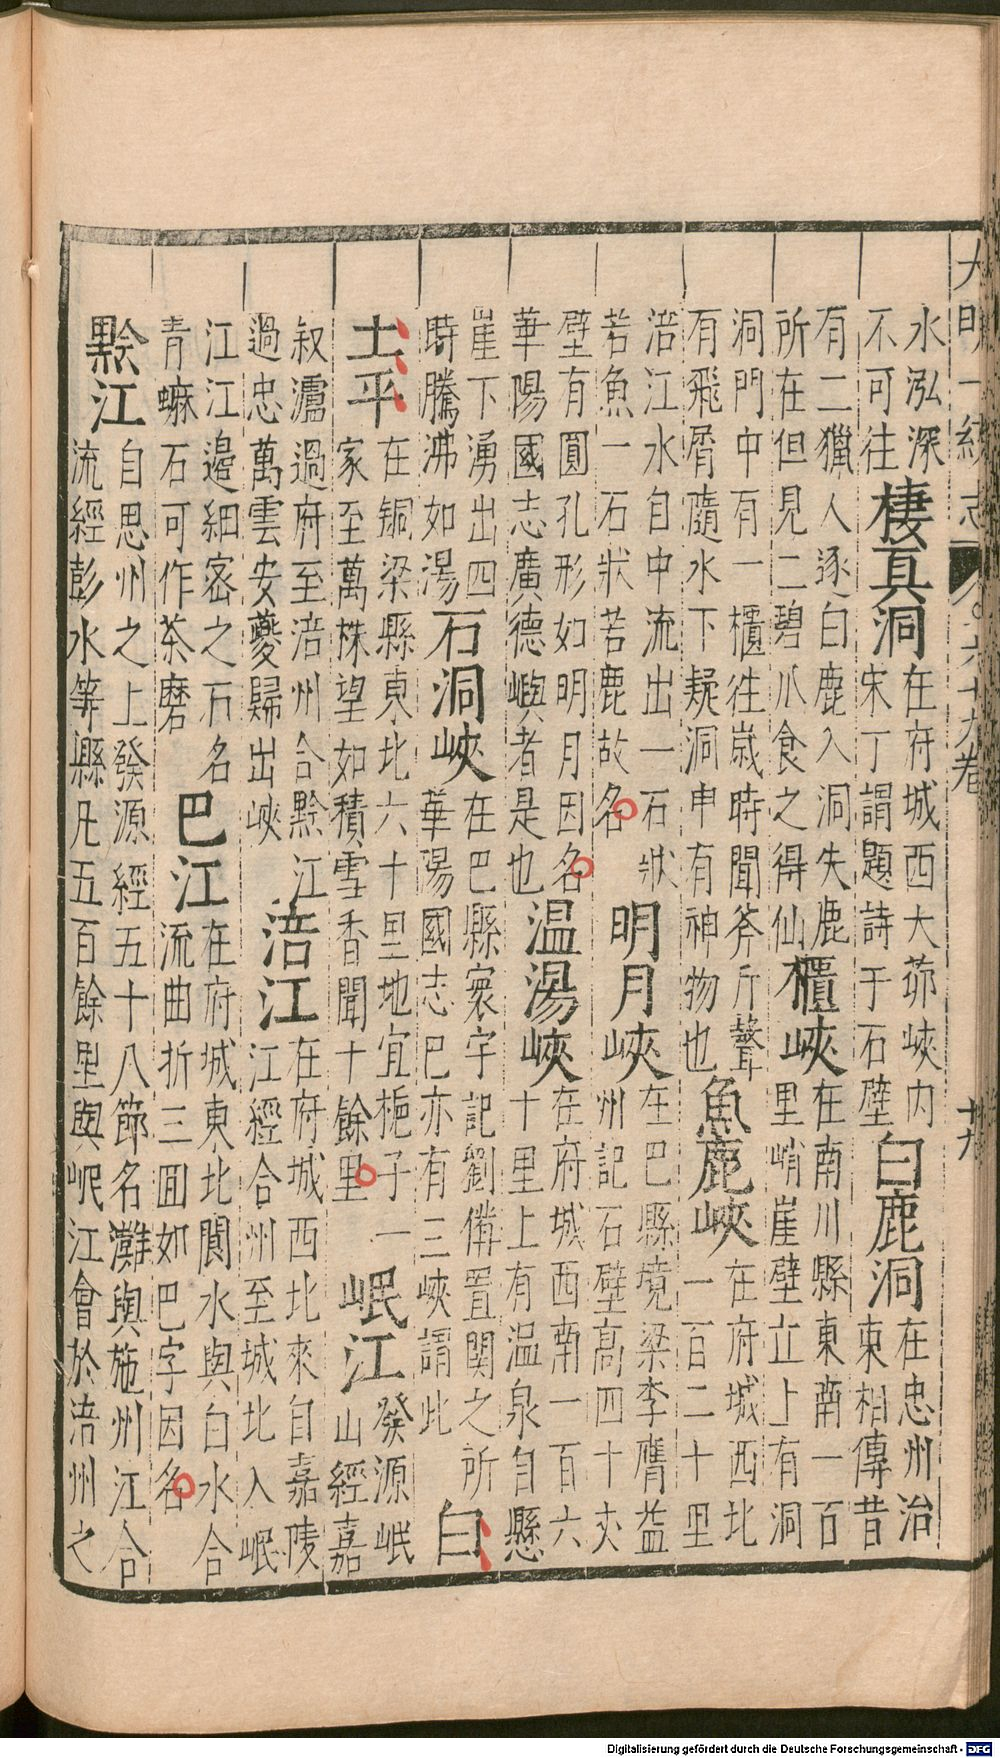 大明一統志 六十九卷 廿九
水泓深
不可往
棲真洞
在府城西大茆峽内
宋丁謂題詩于石壁
白鹿洞
在忠州治
東相傳昔
有二獵人逐白鹿入洞失鹿
所在但見二碧爪食之得仙
櫃峽
在南川縣東南一百
里峭崖壁立上有洞
洞門中有一櫃往歲時聞斧斤聲
有飛屑隨水下疑洞中有神物也
魚鹿峽
在府城西北
一百二十里
涪江水自中流出一石狀
若魚一石狀若鹿故名
明月峽
在巴縣境梁李膺益
州記石壁高四十丈
壁有圓孔形如明月因名
華陽國志廣德嶼者是也
温湯峽
在府城西南一百六
十里上有温泉自懸
崖下湧出四
時騰沸如湯
石洞峽
在巴縣寰宇記劉備置関之所
華陽國志巴亦有三峽謂此
白
土平
在铜梁縣東北六十里地宜梔子一
家至萬株望如積雪香聞十餘里
岷江
發源岷
山經嘉
叙瀘過府至涪州合黔江
過忠萬雲安夔歸出峽
涪江
在府城西北來自嘉陵
江經合州至城北入岷
江江邉細宻之石名
青蠊石可作茶磨
巴江
在府城東北閬水與白水合
流曲折三囬如巴字因名
黔江
自思州之上發源經五十八節名灘與施州江合
流經彭水等縣凡五百餘里與岷江會於涪州之
Digitalisierung gefördert durch die Deutsche Forschungsgemeinschaft - DFG